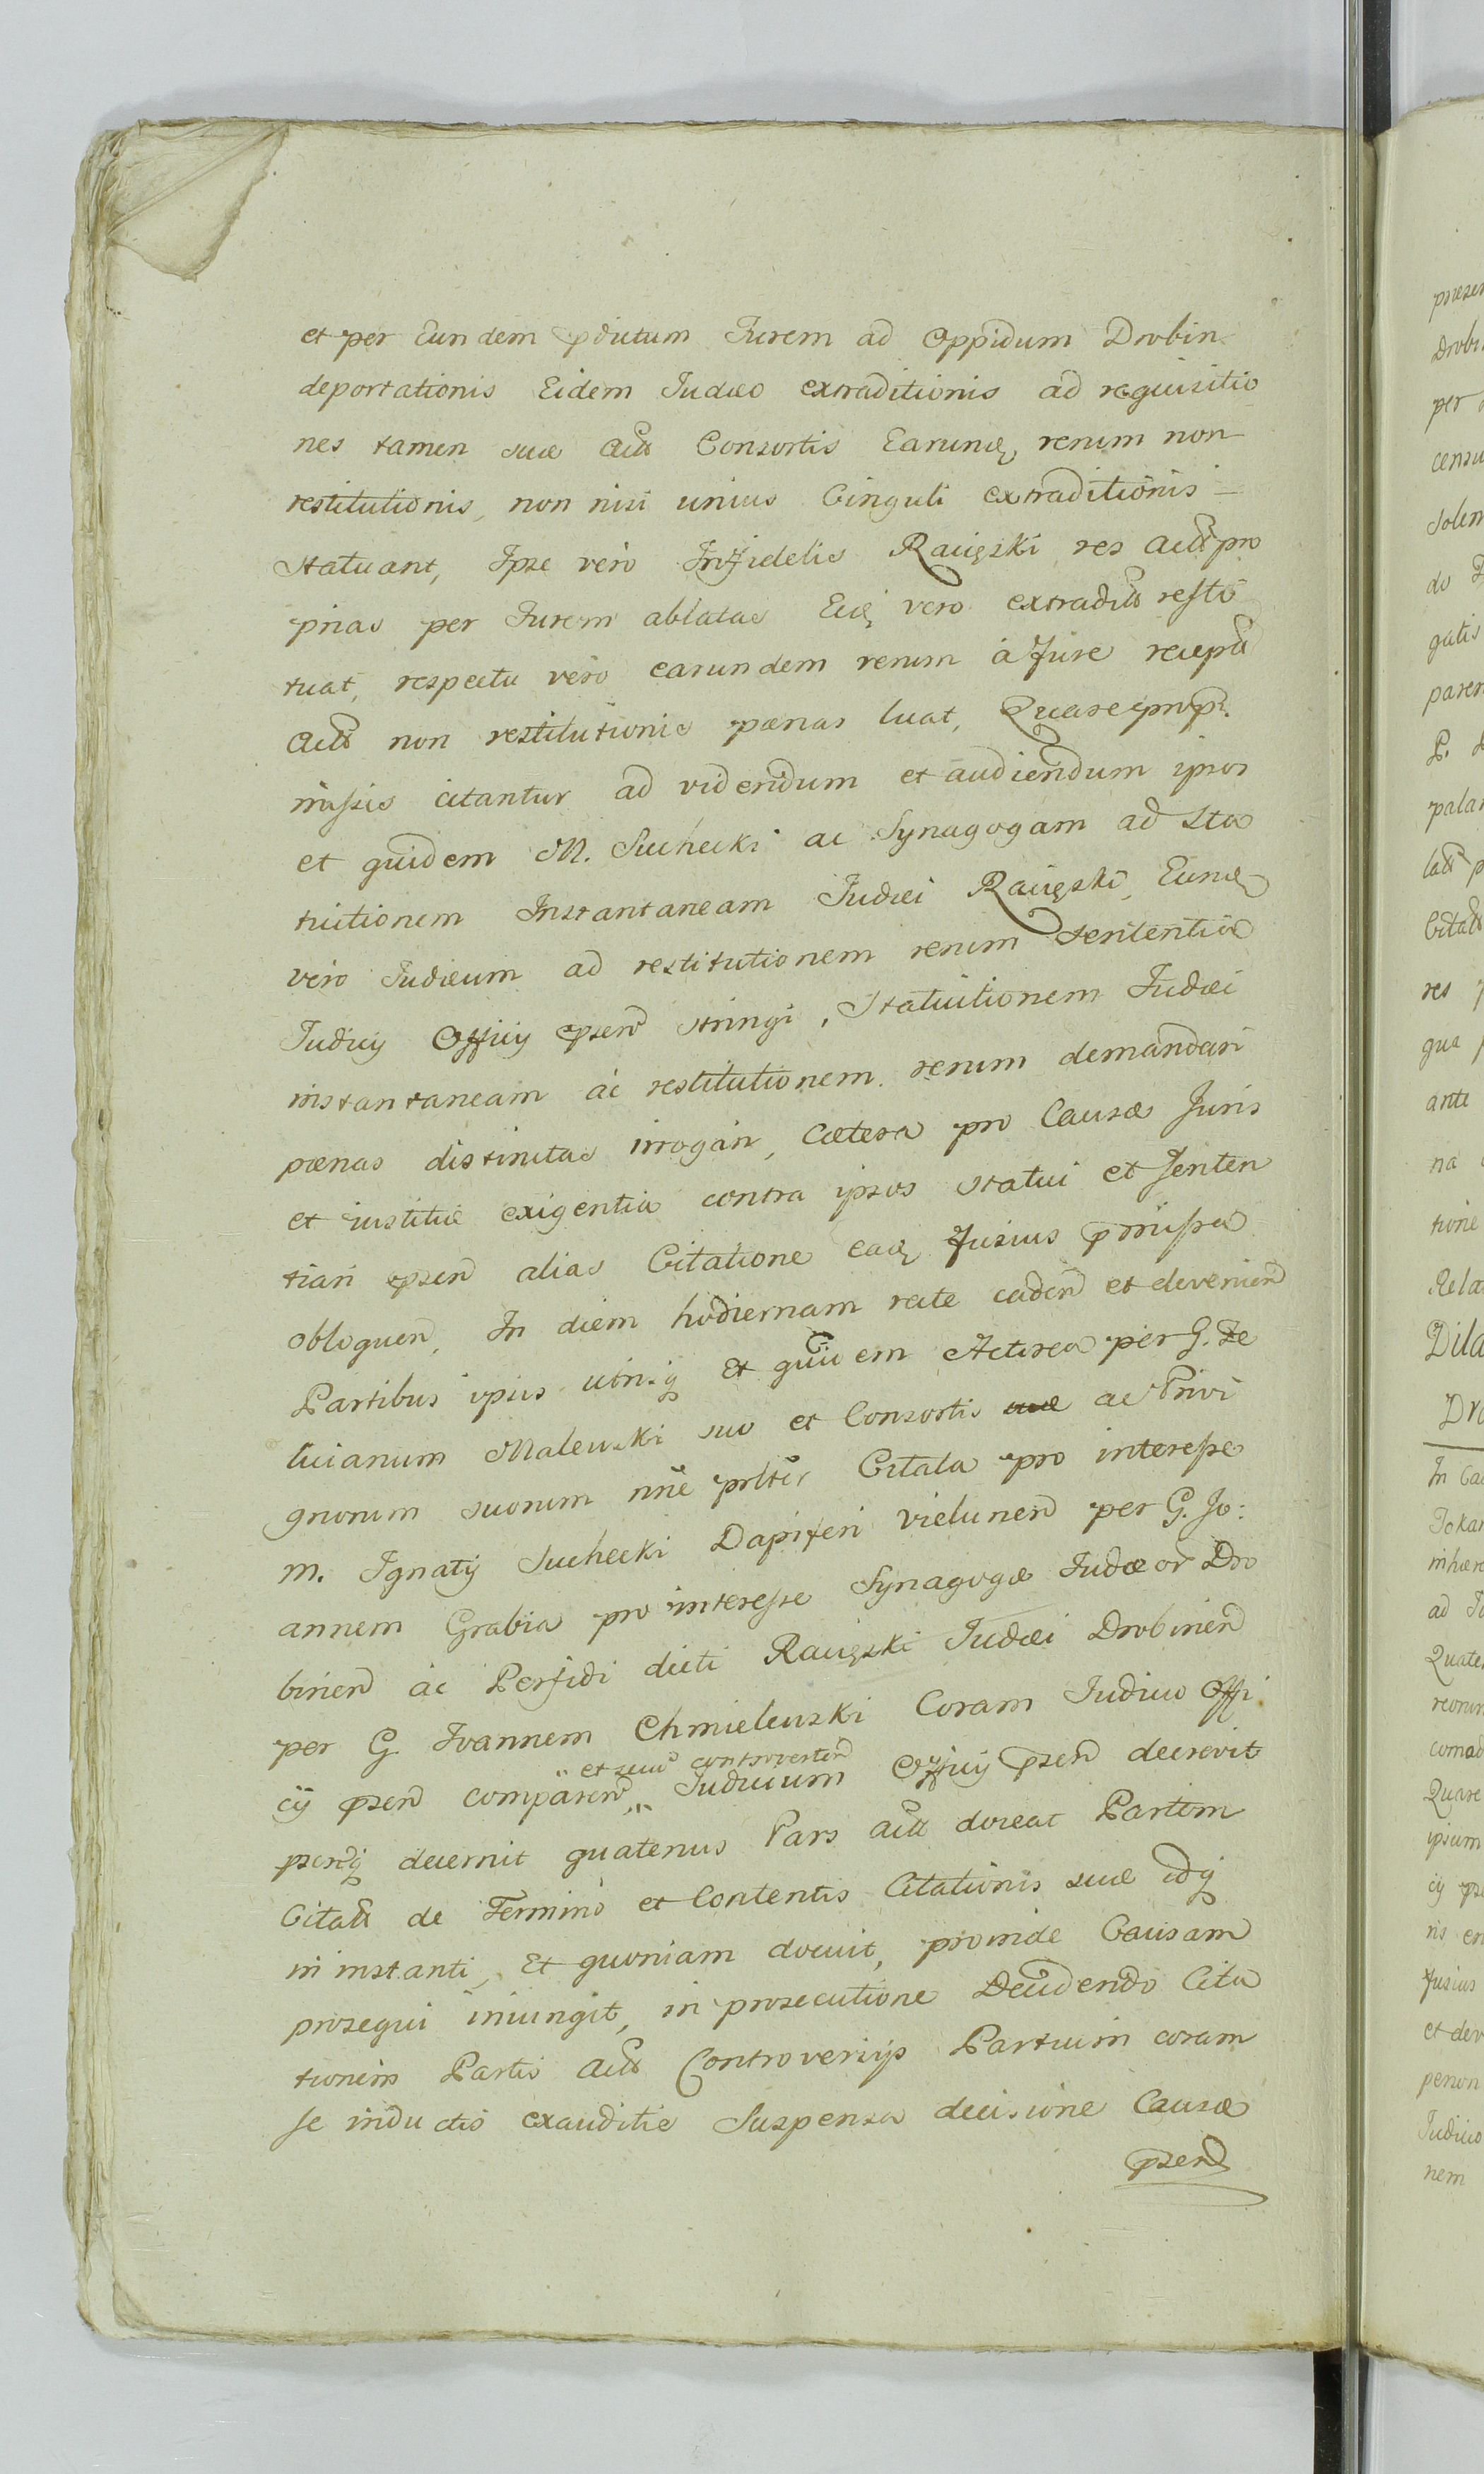 et per Eundem pdictum Furem ad Oppidum Drobin
deportationis Eidem Judæo extraditionis ad requisitio
nes tamen suæ Act Consortis Earumq renum non
restitutionis, non nisi unius Cinguli extraditionis
statuant, Ipse vero Infidelis Racięzki res Act pro
prias per Furem ablatas Eiq vero extradit resti
tuat, respectu vero earundem rerum a Fure recept
Act non restitutionis pænas luat, Quare pro p
missis citantur ad videndum et audiendum ipsos
et quidem M. Suchecki ac Synagogam ad Sta
tuitionem Instantaneam Judæi Racięzki, Eumq
vero Judæum ad restitutionem rerum sententia
Judicÿ Officÿ psen stringi, Statuitionem Judæi
instantaneam ac restitutionem rerum demandari
pænas distinctas irrogari, Cætera pro Causæ Juris
et iustitiæ exigentia contra ipsos statui et senten
tiari psen alias Citatione eaq fusius pmissa
obloquen, In diem hodiernam recte caden et devenien
Partibus ipsis utrisq Et quidem Actorea per G. Fe
licianum Malewski suo et Consortis ac Privi
gnorum suorum nñe Citata pro interesse
M. Ignatÿ Suchecki Dapiferi Vielunen per G. Jo:
annem Grabia pro interesse Synagogæ Judæor Dro
binen ac Perfidi dicti Racięzki Judæi Drobinen
per G Joannem Chmielewski Coram Judicio Offi
et secum controverten
cÿ psen comparen, Judicium Officÿ psen decrevit
psenq decernit quatenus Pars Act doceat Partem
Citat de Termino et Contentis Citationis suæ idq
in instanti, Et quoniam docuit, proinde Causam
prosequi iniungit, in prosecutione Deducendo Cita
tionem Partis Act Controversÿs Partium coram
se inductis exauditis Suspensa decisione Causæ
psen